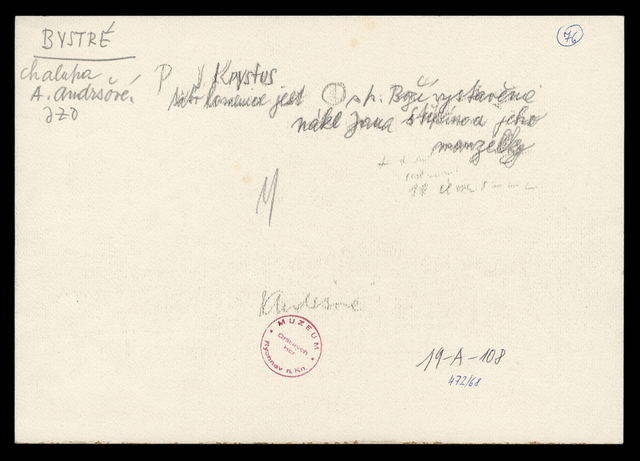 BYSTRÉ
76
chalupa
A. Andršové.
JZD
P V Krystus
tato komenice jest p. Boží vystavěna
nákl Jana Štěpána a jeho
manzelky
M
MUZEUM
Orlických
Hor
Rychnov n. Kn.
19-A-108
472/61